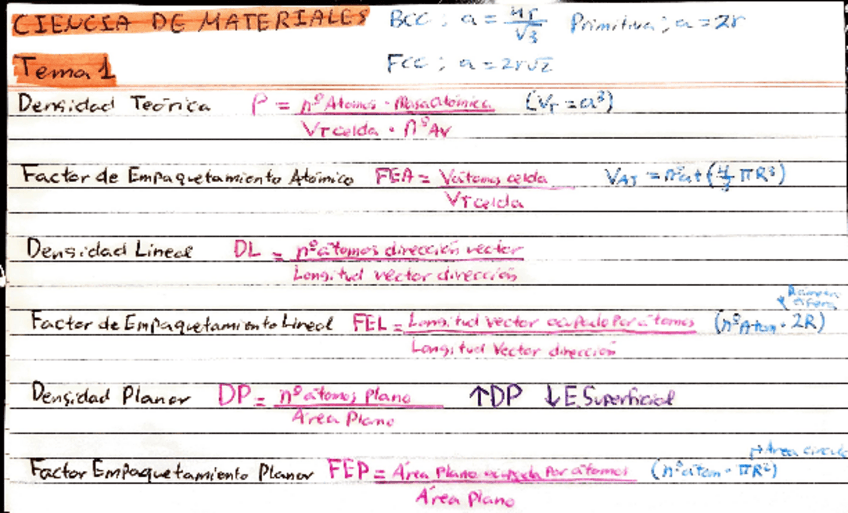 CIENCIA DE MATERIALES BCC; a = 4r/√3 Primitiva; a = 2r
Tema 1 FCC; a = 2r√2
Densidad Teórica ρ = nº Atomos · Masa atómica / VT celda · nº Av (VT = a³)
Factor de Empaquetamiento Atómico FEA = V átomos celda / VT celda VAT = nº at (4/3 πR³)
Densidad Lineal DL = nº átomos dirección vector / Longitud vector dirección
Factor de Empaquetamiento Lineal FEL = Longitud vector ocupado por átomos / Longitud Vector dirección (nº Atom · 2R)
Densidad Planar DP = nº átomos plano / Área Plano ↑DP ↓E. Superficial
Factor Empaquetamiento Planar FEP = Área plano ocupada por átomos / Área Plano (nº átom · πR²) → Área circulo